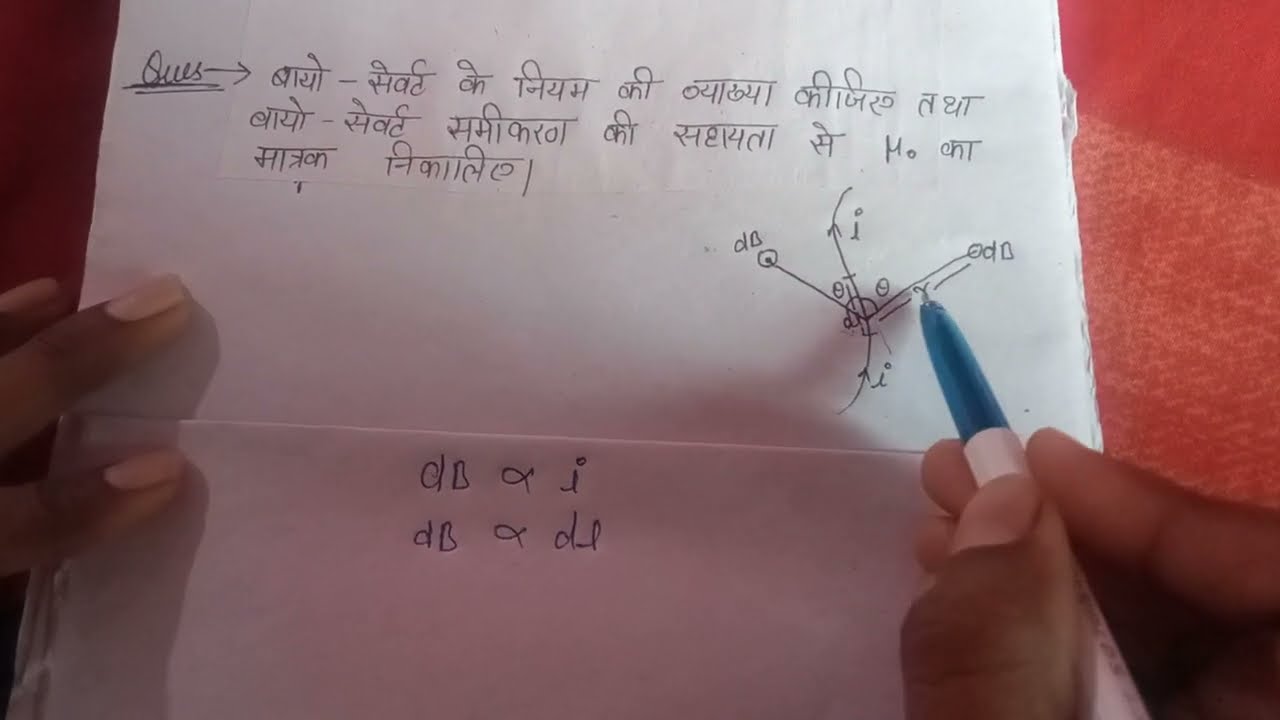 Ques→ बायो - सेवर्ट के नियम की व्याख्या कीजिए तथा
बायो - सेवर्ट समीकरण की सहायता से μ₀ का
मात्रक निकालिए।
i
dB
dB
θ θ
r
dl
i
dB ∝ i
dB ∝ dl